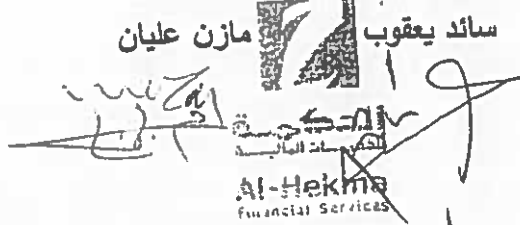 سائد يعقوب مازن عليان
الحكمة
للخدمات المالية
Al-Hekma
Financial Services